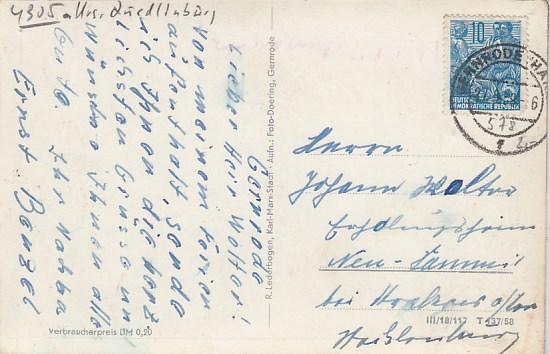 4305 a Krs. Quedlinburg
Gernrode
Lieber Herr Wolter!
Von meinem Ferien
aufenthalt, sende
ich Ihnen die herz
lichsten Grüsse u.
wünsche Ihnen alles
Gute. Ihr
Ernst Benzel
Verbraucherpreis DM 0,20
R. Lederbogen, Karl-Marx-Stadt · Aufn.: Foto-Doering, Gernrode
10
DEUTSCHE
DEMOKRATISCHE REPUBLIK
GERNRODE (HARZ)
Herrn
Johann Wolter
Erholungsheim
Neu-
bei Krakow a/See
Mecklenburg
III/18/117 T 137/58